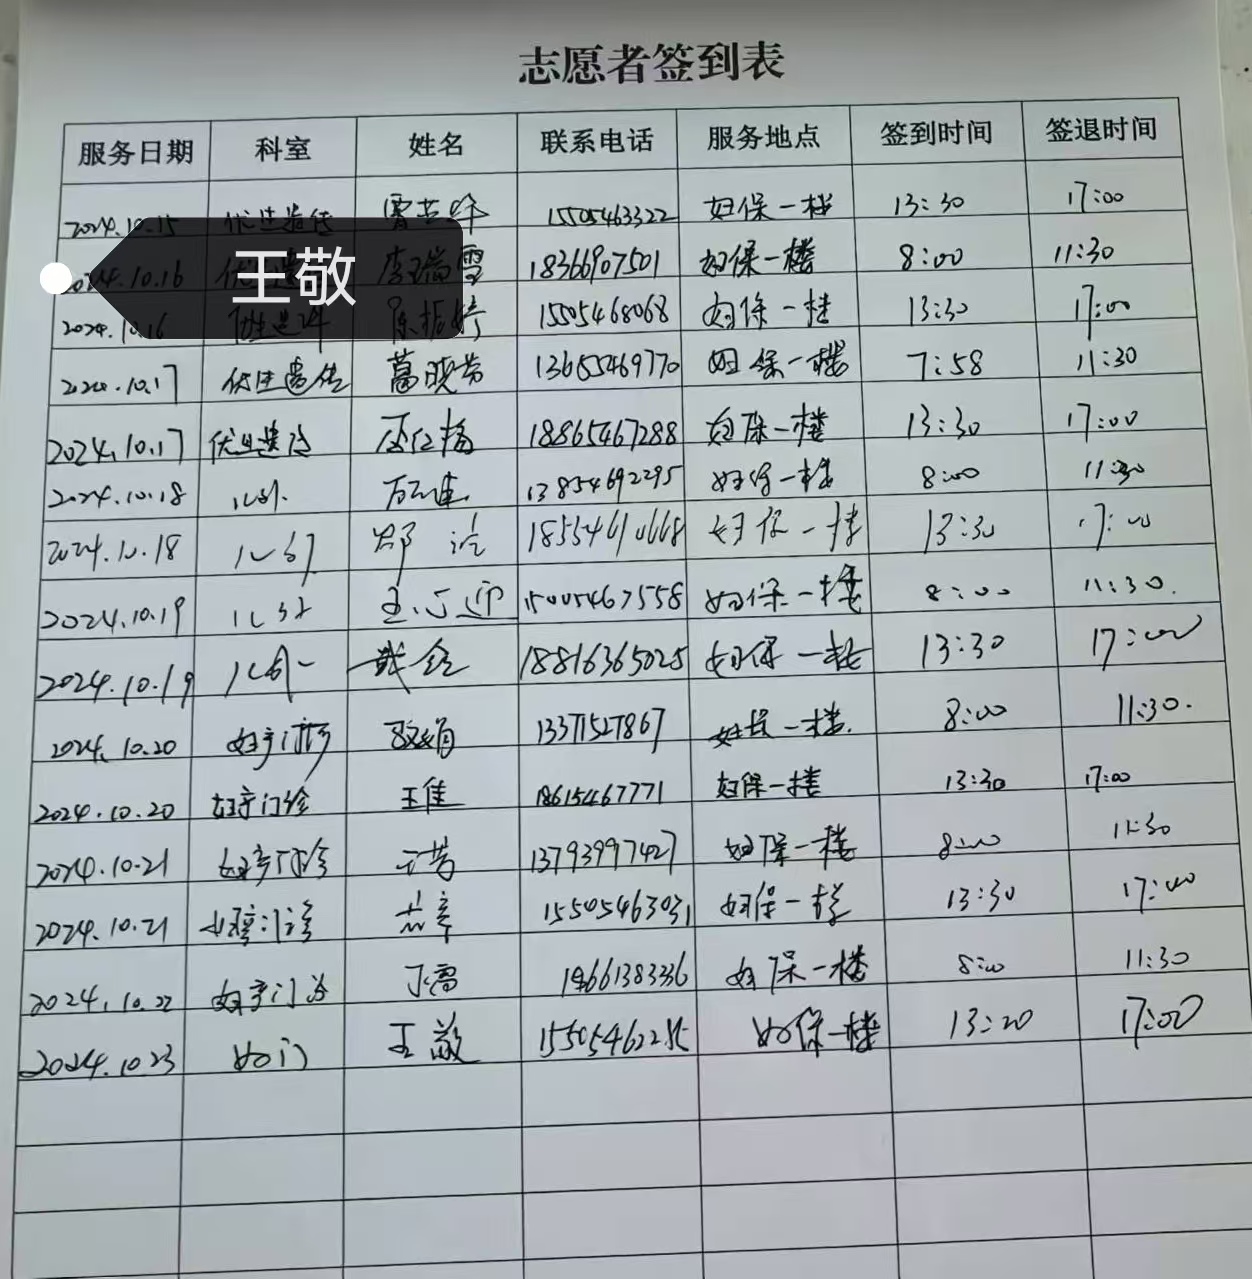 志愿者签到表
服务日期 科室 姓名 联系电话 服务地点 签到时间 签退时间
2024.10.15 优生遗传 15505463322 妇保一楼 13:30 17:00
2024.10.16 李瑞雪 18366907501 妇保一楼 8:00 11:30
王敬
2024.10.16 陈振婷 15505468068 妇保一楼 13:30 17:00
2024.10.17 优生遗传 葛晓芳 13655469770 妇保一楼 7:58 11:30
2024.10.17 优生遗传 18865467288 妇保一楼 13:30 17:00
2024.10.18 儿外 13854692295 妇保一楼 8:00 11:30
2024.10.18 儿外 妇保一楼 13:30 17:00
2024.10.19 儿外 王心迎 15005467558 妇保一楼 8:00 11:30.
2024.10.19 儿外 18816365025 妇保一楼 13:30 17:00
2024.10.20 妇产门诊 13371527867 妇保一楼. 8:00 11:30.
2024.10.20 妇产门诊 王佳 18615467771 妇保一楼 13:30 17:00
2024.10.21 妇产门诊 13793997427 妇保一楼 8:00 11:30
2024.10.21 门诊 15505463031 妇保一楼 13:30 17:00
2024.10.22 妇产门诊 丁雪 妇保一楼 8:00 11:30
2024.10.23 妇门 王敬 妇保一楼 13:20 17:00